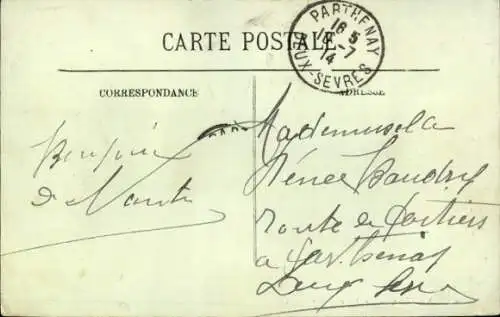 CARTE POSTALE
PARTHENAY
16 5
16 - 7
14
DEUX-SEVRES
CORRESPONDANCE
ADRESSE
Bonjour
de Nantes
Mademoiselle
Rénée Baudry
route de Poitiers
à Parthenay
Deux Sèvres